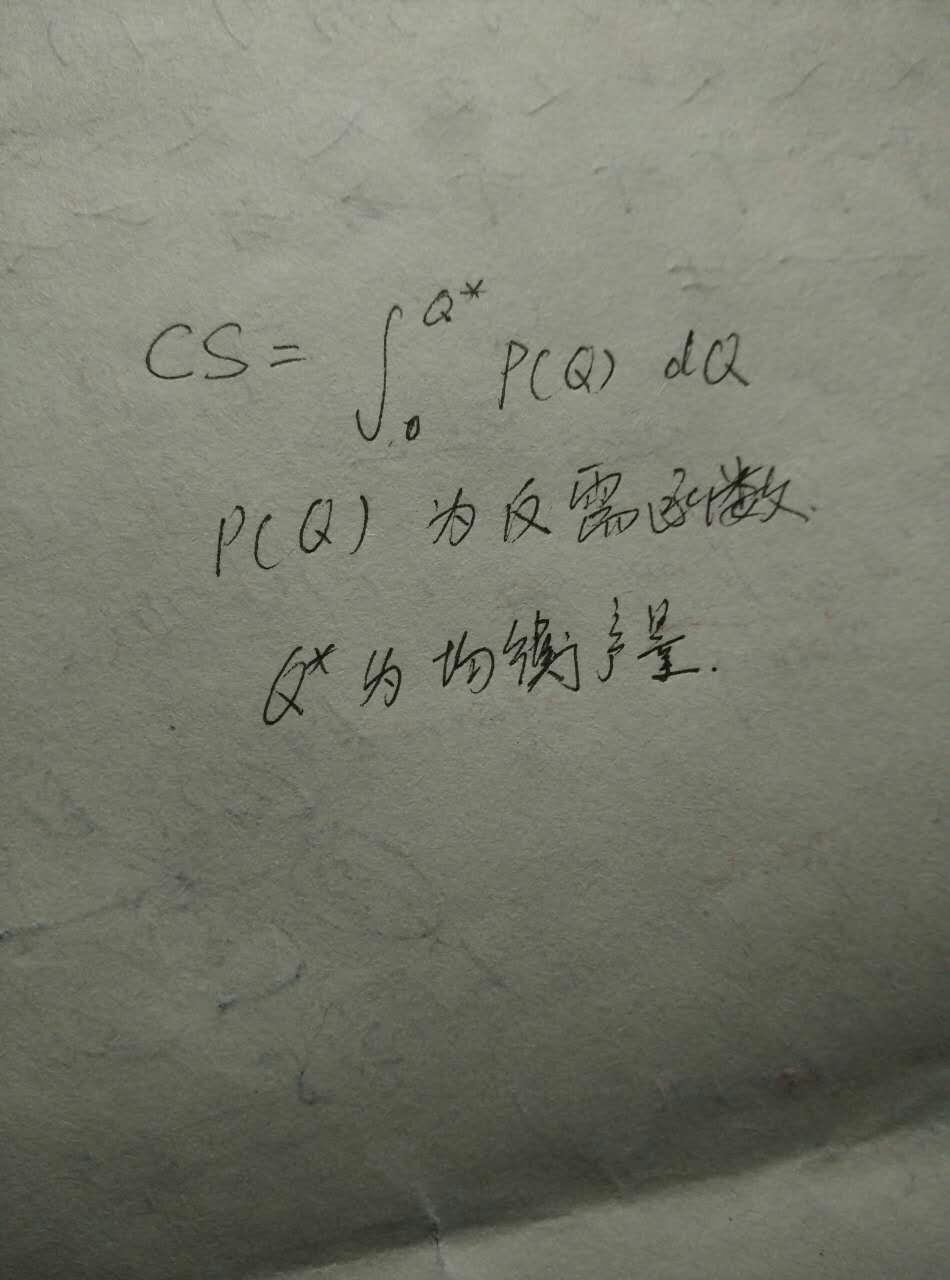 CS = ∫₀^Q* P(Q) dQ
P(Q) 为反需函数.
Q* 为均衡产量.